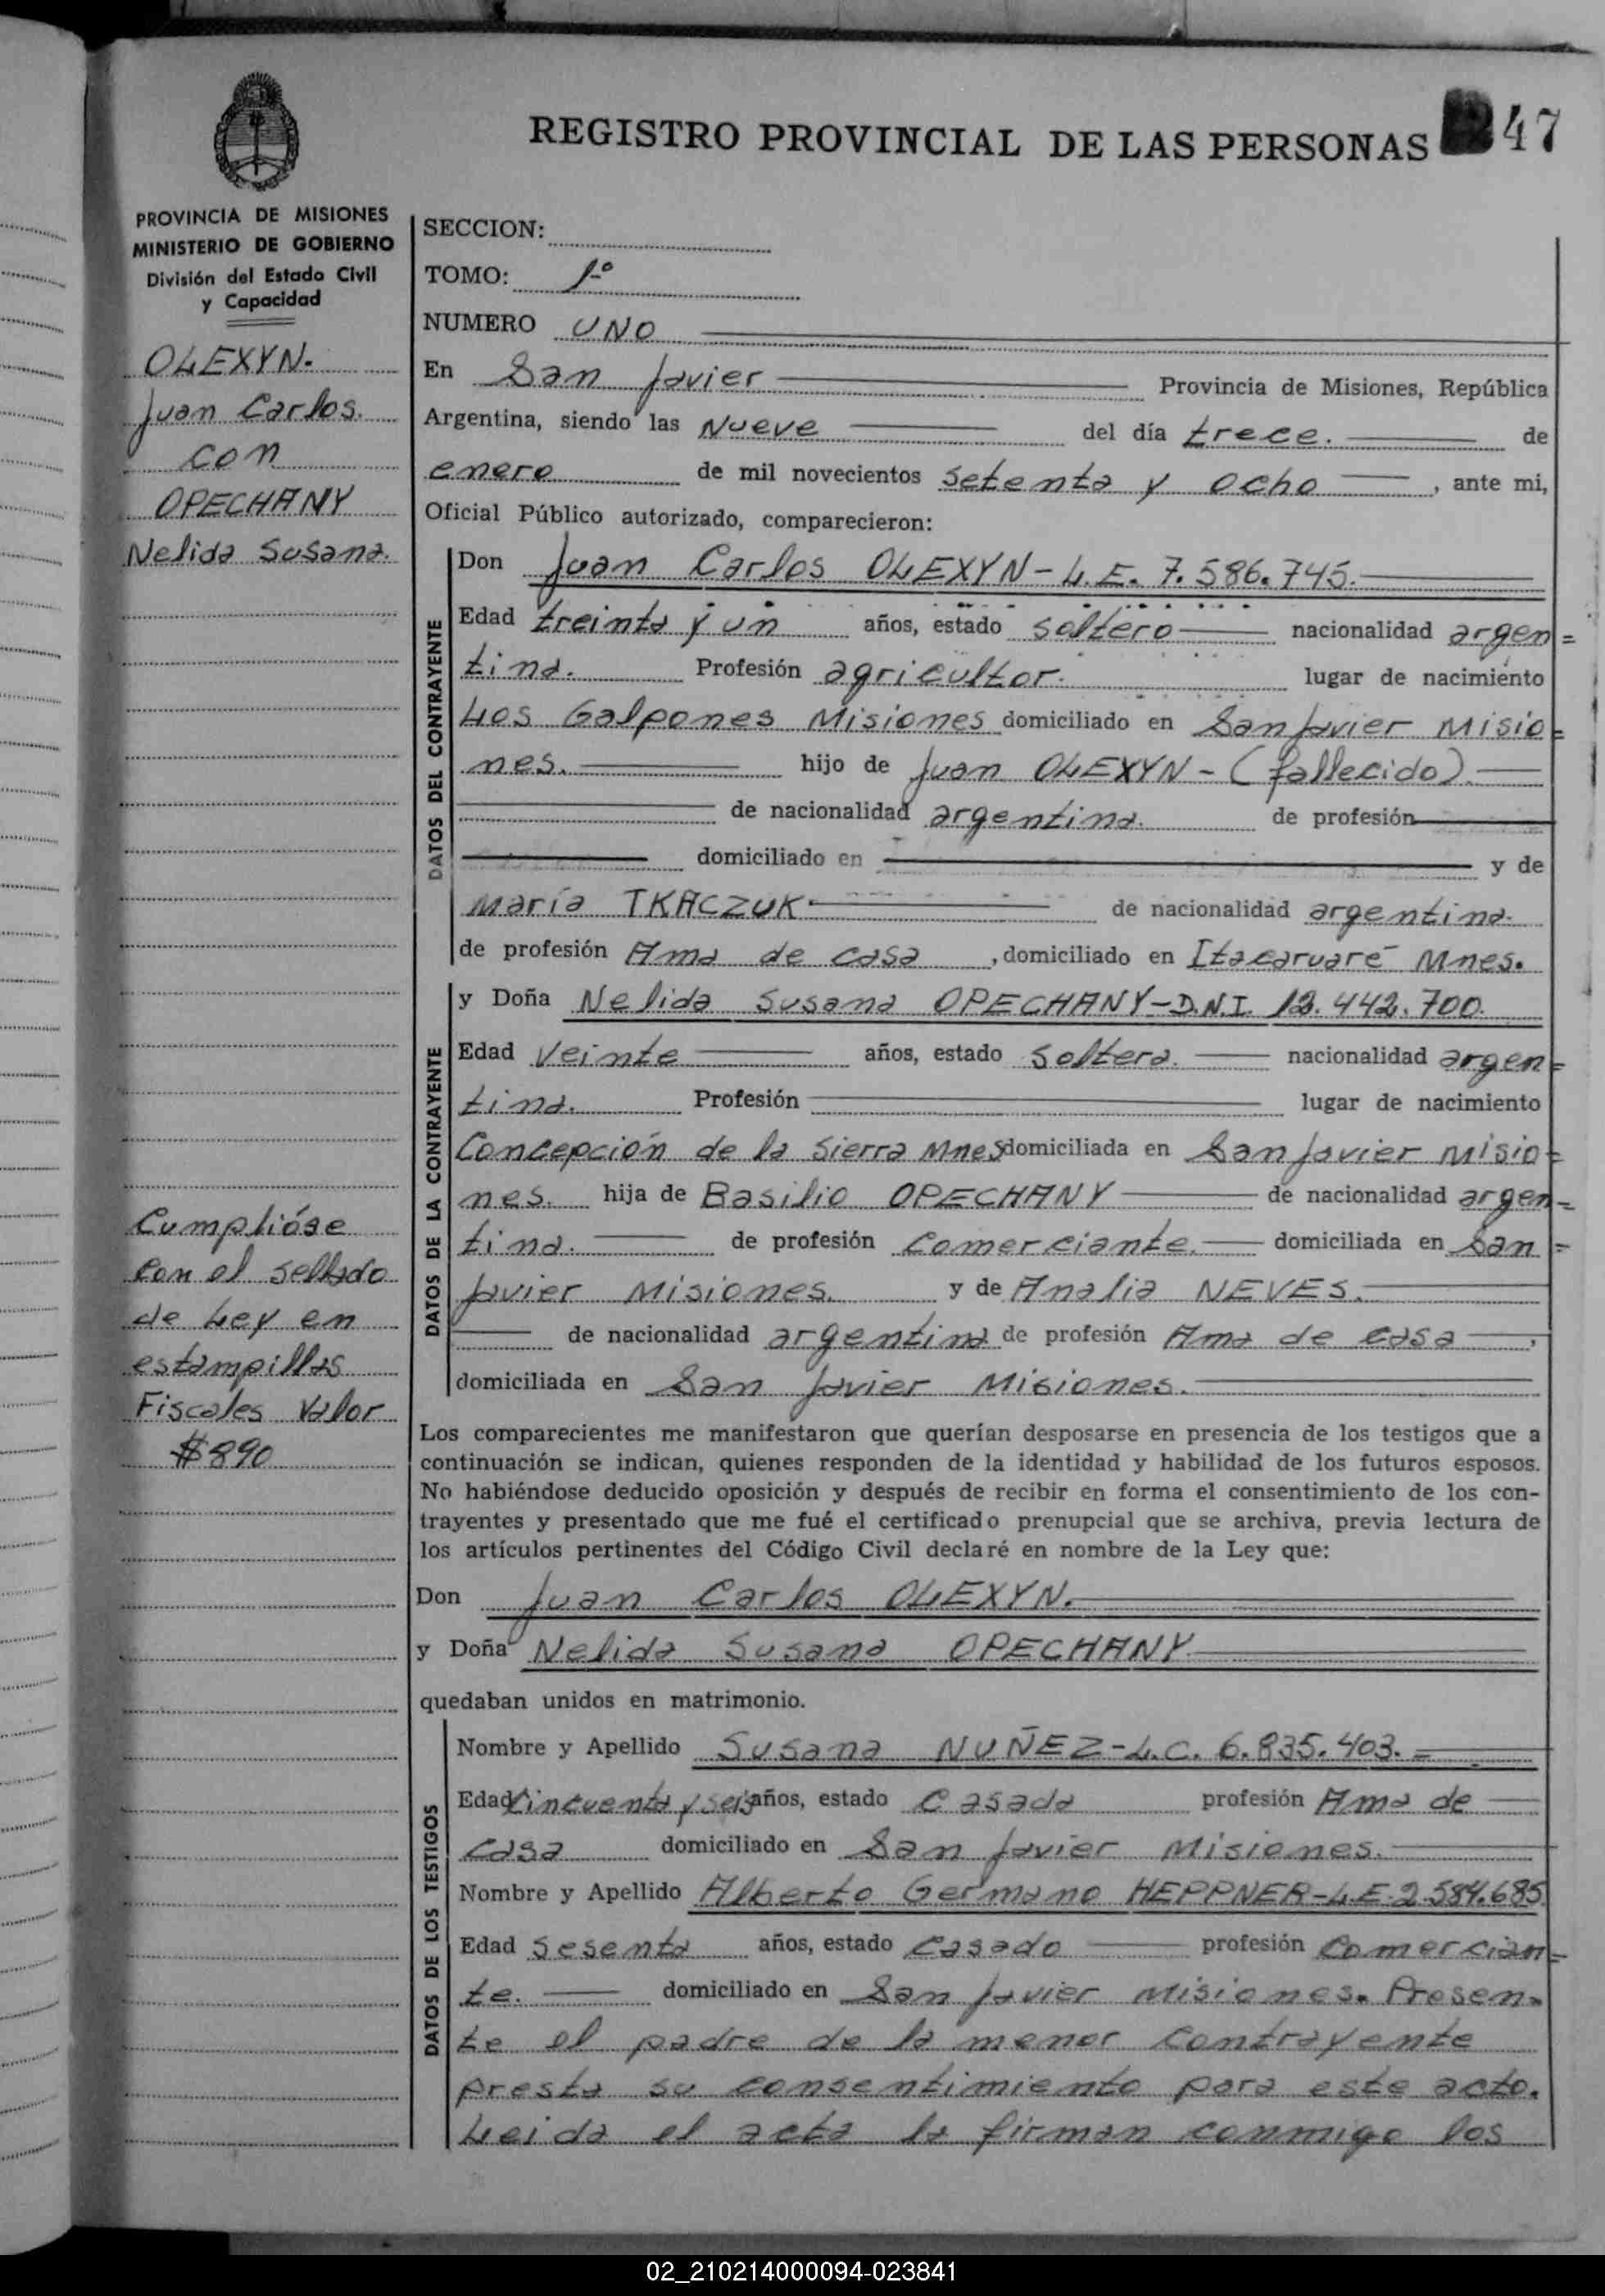 REGISTRO PROVINCIAL DE LAS PERSONAS
47
PROVINCIA DE MISIONES
MINISTERIO DE GOBIERNO
División del Estado Civil
y Capacidad
OLEXYN.
Juan Carlos.
con
OPECHANY
Nelida Susana.
Cumplióse
con el sellado
de Ley en
estampillas
Fiscales Valor
$890
SECCION:
TOMO: 1º
NUMERO UNO
En San Javier Provincia de Misiones, República
Argentina, siendo las Nueve del día trece. de
enero de mil novecientos setenta y ocho , ante mi,
Oficial Público autorizado, comparecieron:
DATOS DEL CONTRAYENTE
Don Juan Carlos OLEXYN - L.E. 7.586.745.
Edad treinta y un años, estado soltero nacionalidad argen=
tina. Profesión agricultor. lugar de nacimiento
Los Galpones Misiones domiciliado en San Javier Misio=
nes. hijo de Juan OLEXYN - (fallecido).
de nacionalidad argentina. de profesión
domiciliado en y de
María TKACZUK de nacionalidad argentina.
de profesión Ama de casa , domiciliado en Itacaruaré Mnes.
DATOS DE LA CONTRAYENTE
y Doña Nelida Susana OPECHANY - D.N.I. 12.442.700.
Edad Veinte años, estado Soltera. nacionalidad argen=
tina. Profesión lugar de nacimiento
Concepción de la Sierra Mnes domiciliada en San Javier Misio=
nes. hija de Basilio OPECHANY de nacionalidad argen=
tina. de profesión Comerciante. domiciliada en San =
Javier Misiones. y de Analia NEVES.
de nacionalidad argentina de profesión Ama de casa ,
domiciliada en San Javier Misiones.
Los comparecientes me manifestaron que querían desposarse en presencia de los testigos que a
continuación se indican, quienes responden de la identidad y habilidad de los futuros esposos.
No habiéndose deducido oposición y después de recibir en forma el consentimiento de los con-
trayentes y presentado que me fué el certificado prenupcial que se archiva, previa lectura de
los artículos pertinentes del Código Civil declaré en nombre de la Ley que:
Don Juan Carlos OLEXYN.
y Doña Nelida Susana OPECHANY
quedaban unidos en matrimonio.
DATOS DE LOS TESTIGOS
Nombre y Apellido Susana NUÑEZ - L.C. 6.835.403. =
Edad Cincuenta y seis años, estado Casada profesión Ama de
casa domiciliado en San Javier Misiones.
Nombre y Apellido Alberto Germano HEPPNER - L.E. 2.584.685
Edad Sesenta años, estado Casado profesión Comercian=
te. domiciliado en San Javier Misiones. Presen=
te el padre de la menor contrayente
presta su consentimiento para este acto.
Leida el acta la firman conmigo los
02_210214000094-023841